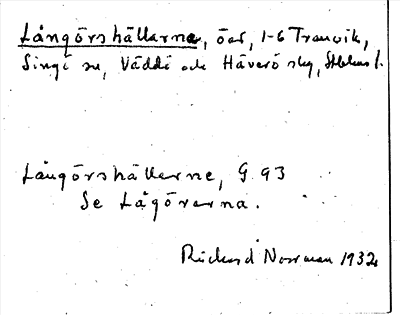 Långörshällarna, öar, 1-6 Tranvik,
Singö sn, Väddö och Häverö slg, Sthlms l.
Långörshällarne, G 93
Se Lågörarna.
Rickard Norrman 1932